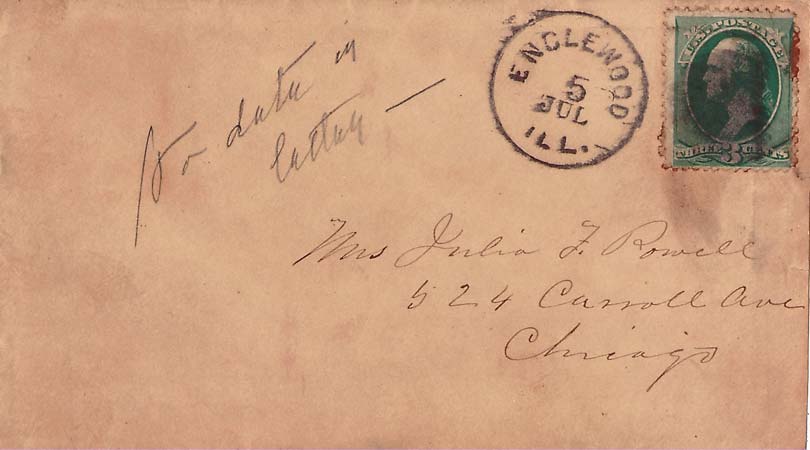 No date in
letter —
ENGLEWOOD
5
JUL
ILL.
U.S. POSTAGE
THREE 3 CENTS
Mrs Julia F. Rowell
524 Carroll Ave
Chicago